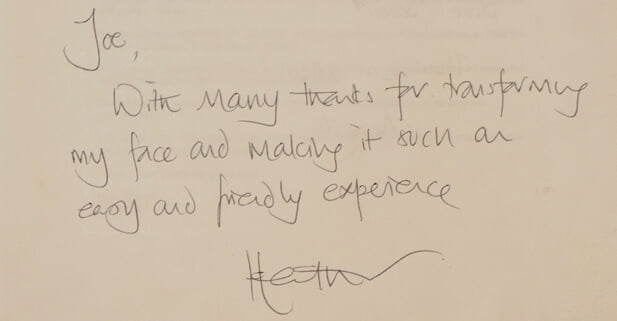 Joe,
With many thanks for transforming
my face and making it such an
easy and friendly experience
Heather